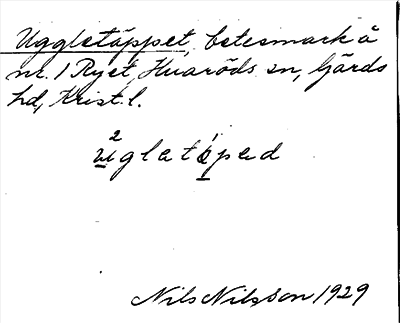 Uggletäppet, betesmark å
nr. 1 Ryet, Huaröds sn, Gärds
hd, Krist. l.
2
ug̀letépad
Nils Nilsson 1929